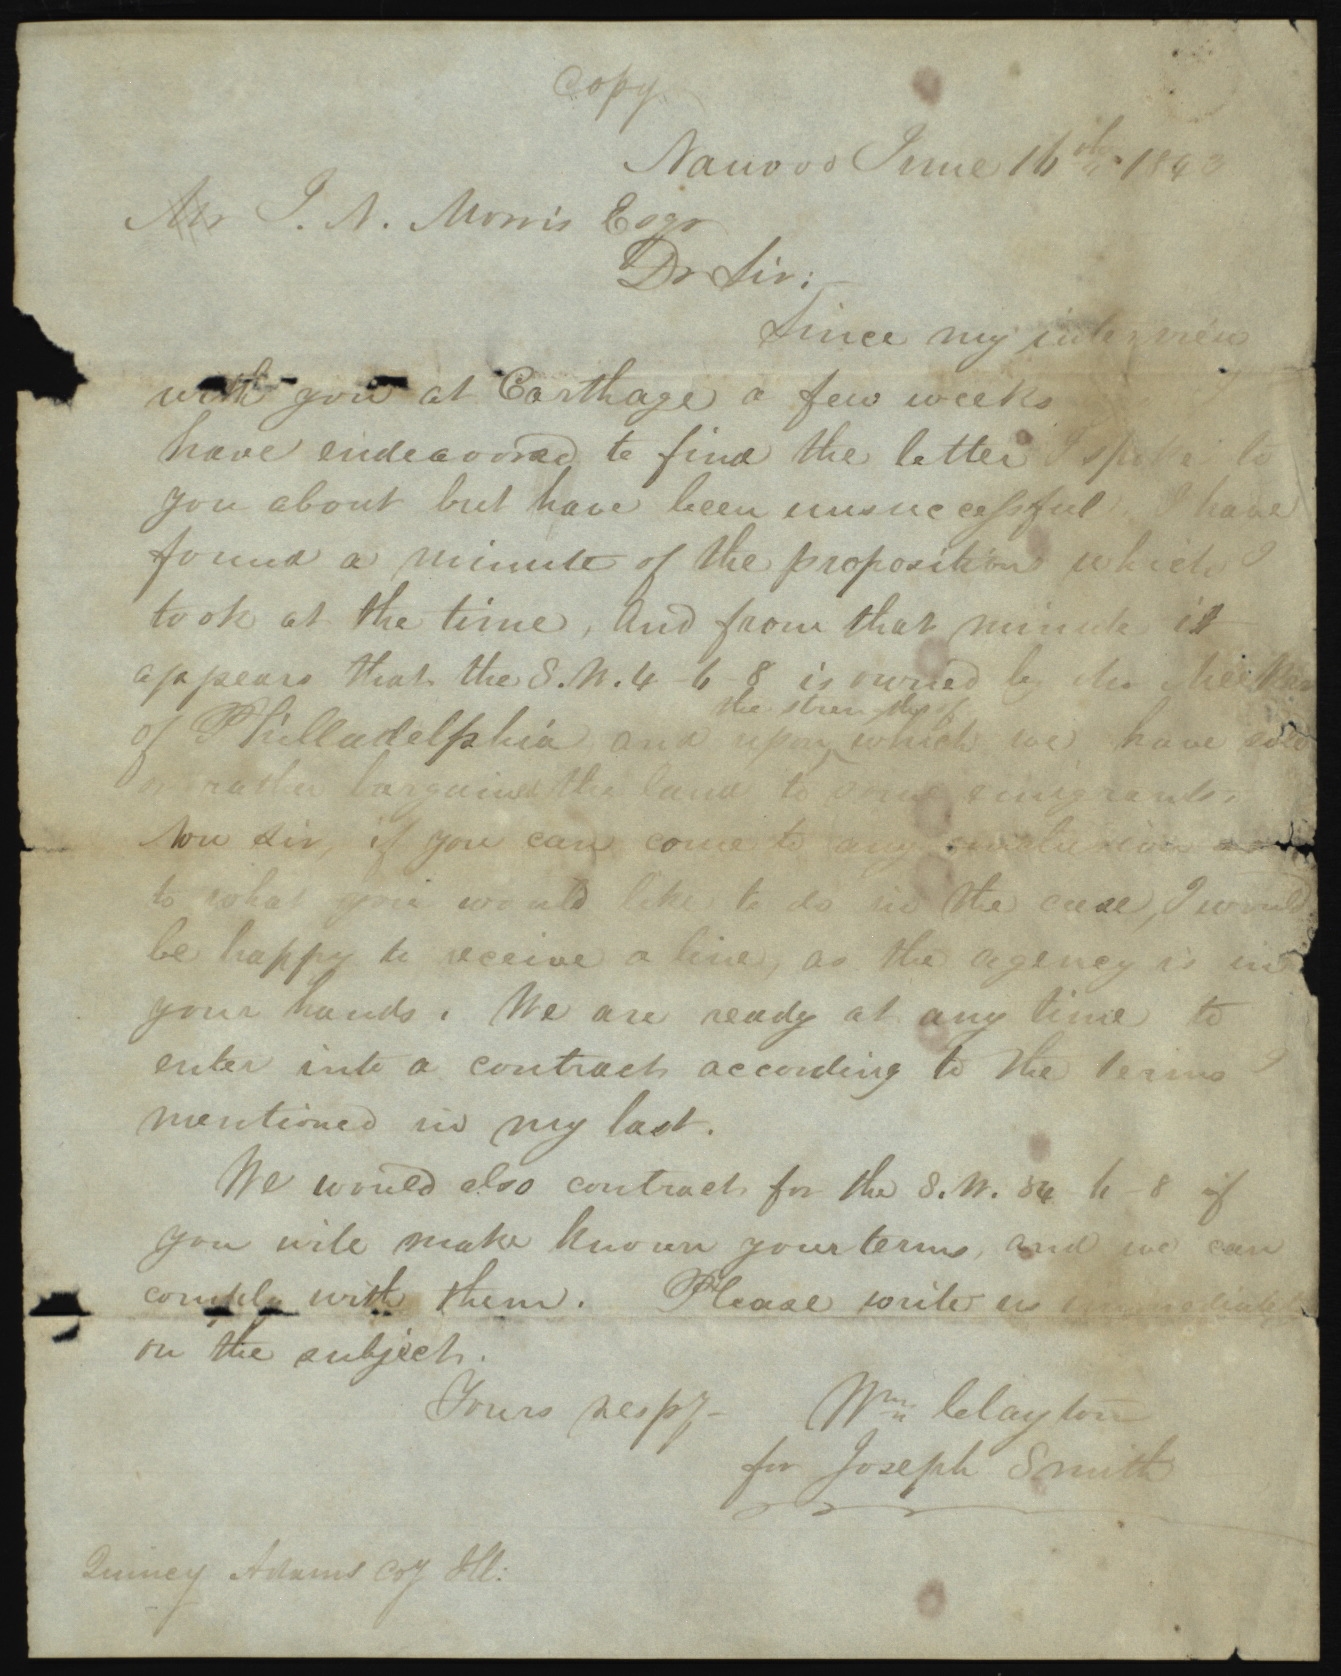 "Copy"
Nauvoo June 16th 1843
Mr I. N. Morris Esqr
Dr Sir;
Since my interview
with you at Carthage a few weeks
have endeavored to find the letter I spoke to
you about but have been unsuccessful. I have
found a minute of the proposition which I
took at the time, and from that minute it
appears that the S.W. 4-6-8 is owned by
of Philladelphia and upon the strength of which we have sold
or rather bargained the land to some emigrants.
Now sir, if you can come to any conclusion as
to what you would like to do in the case, I would
be happy to receive a line, as the agency is in
your hands. We are ready at any time to
enter into a contract according to the terms I
mentioned in my last.
We would also contract for the S.W. 6-8 if
you will make known your terms, and we can
comply with them. Please write us immediately
on the subject.
Yours respy- Wm Clayton
for Joseph Smith
Quincy Adams Coy Ill: